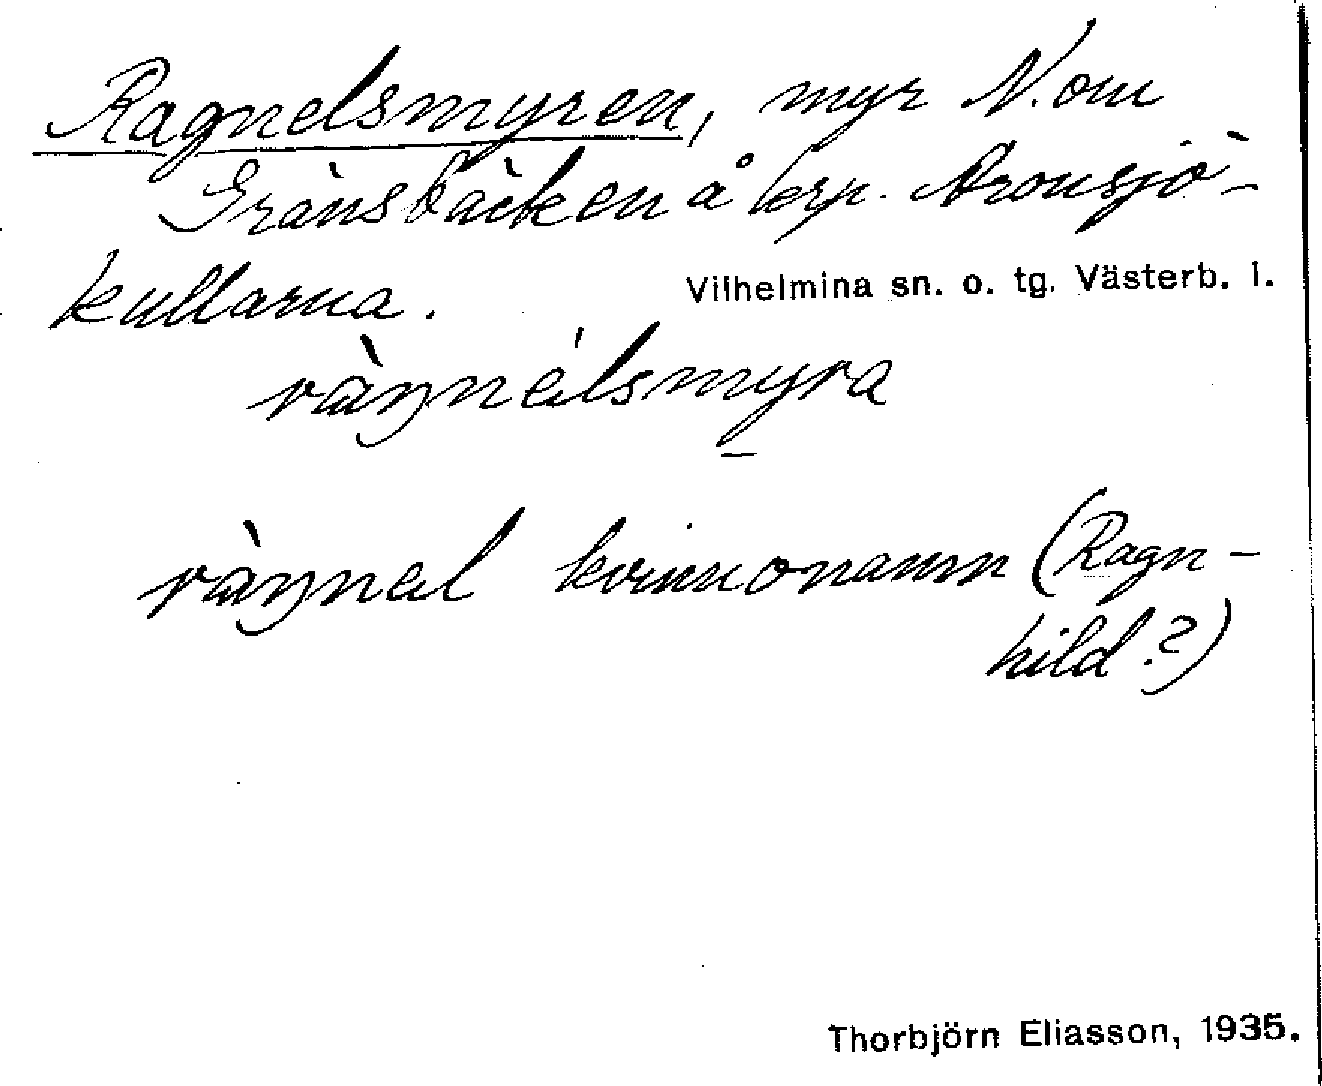 Ragnelsmyren, myr N. om
Gränsbäcken å krp. Aronsjö-
kullarna.
Vilhelmina sn. o. tg. Västerb. l.
ràŋnélsmyra
ràŋnel kvinnonamn (Ragn-
hild?)
Thorbjörn Eliasson, 1935.